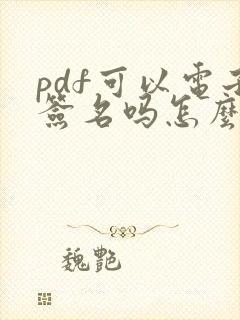 pdf可以電子
簽名吗怎麼
魏艷